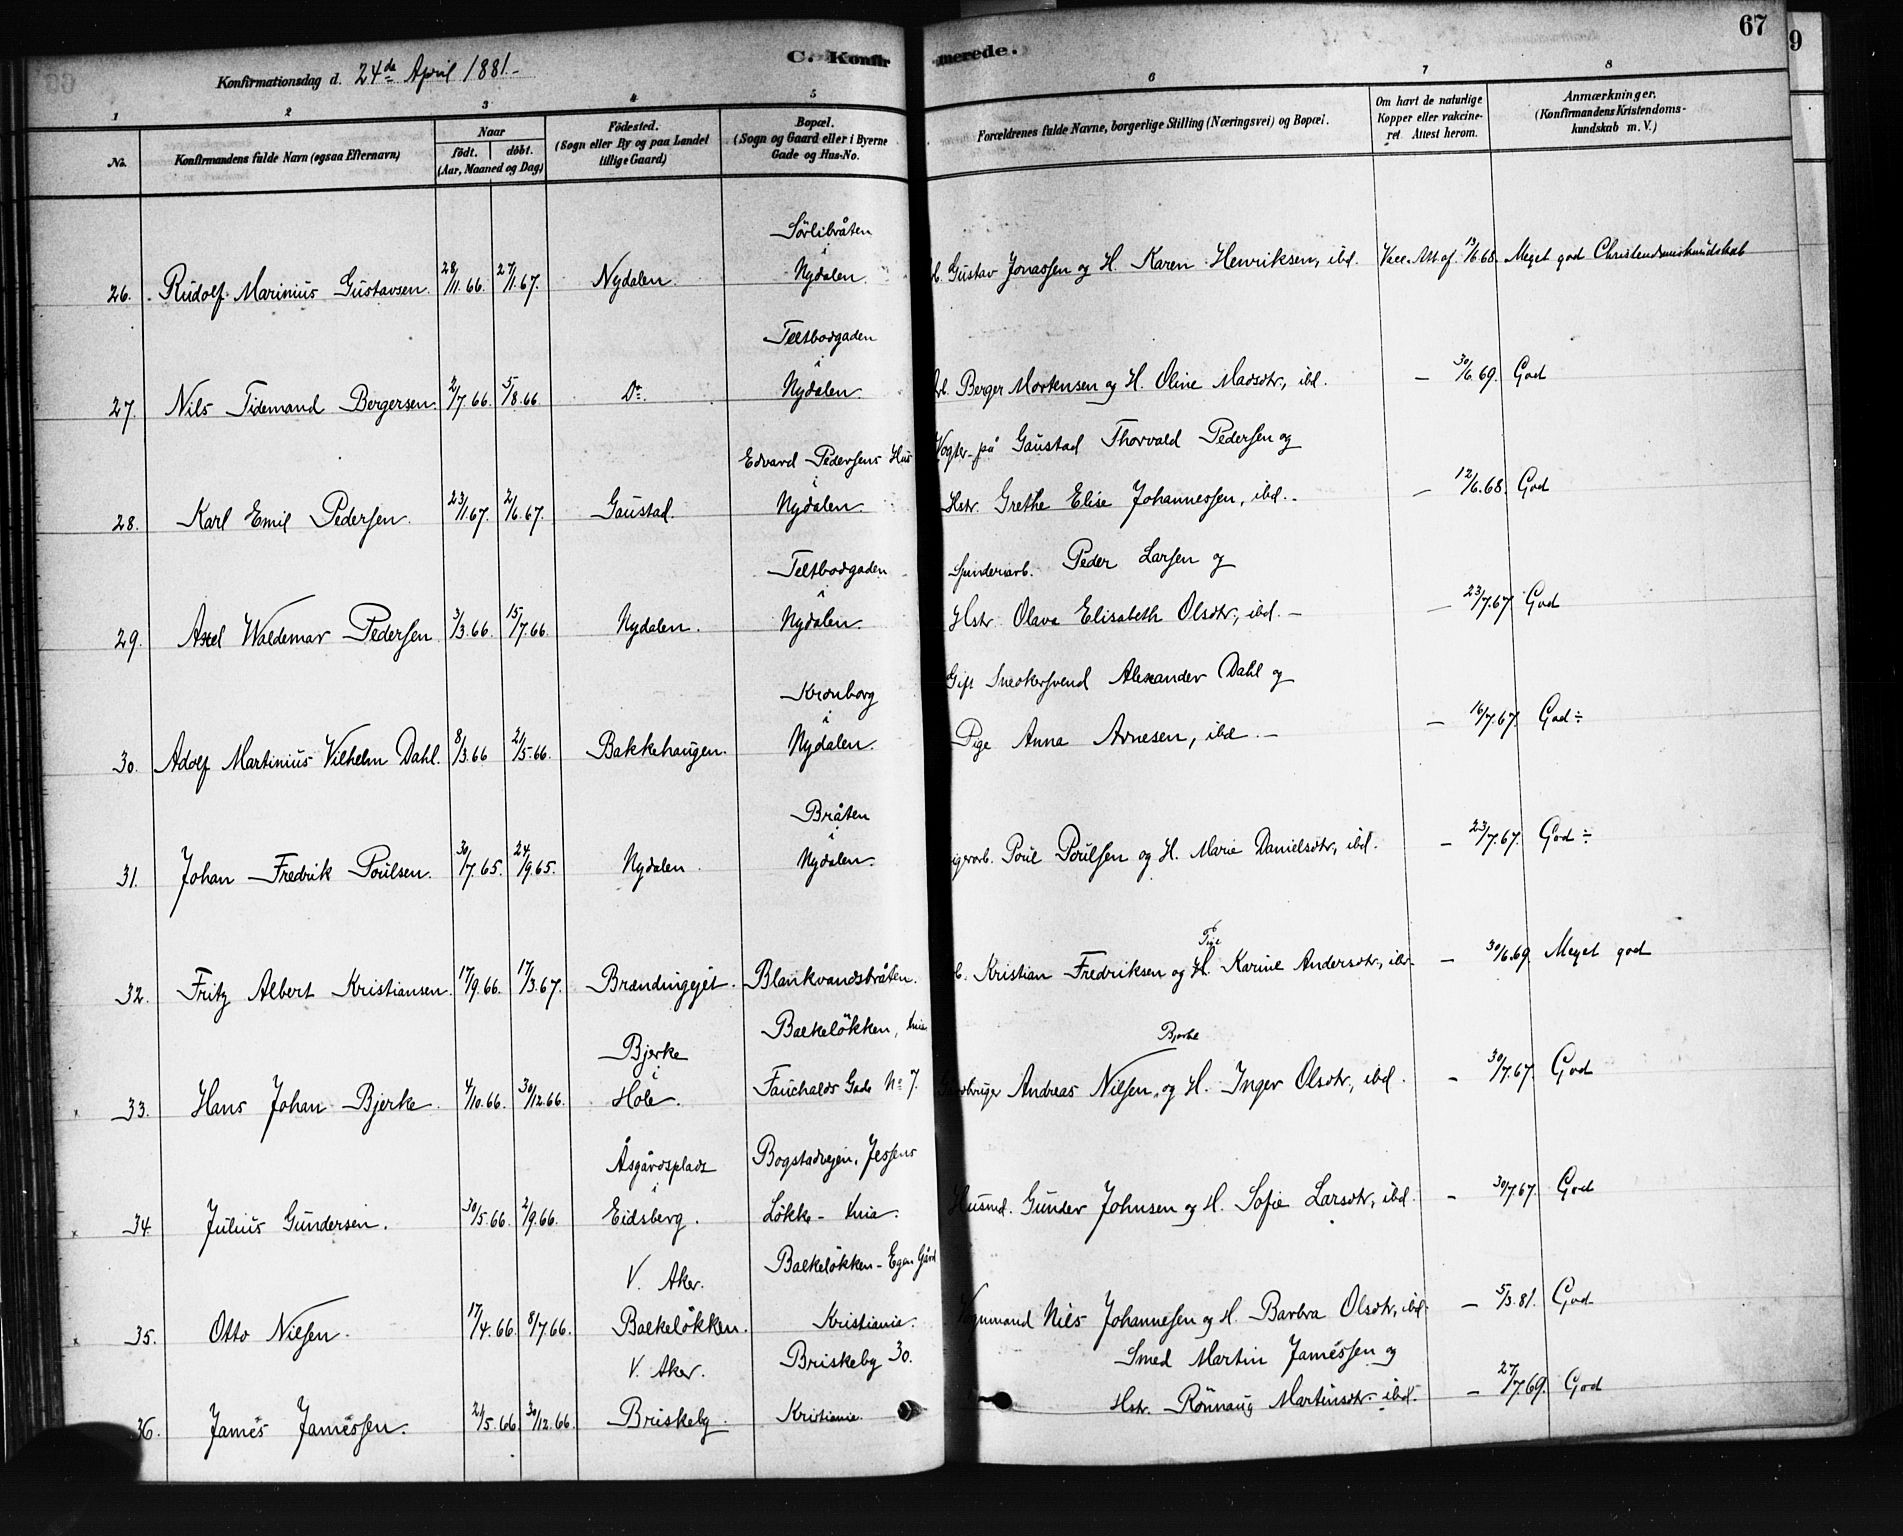 67
9
Konfirmationsdag d. 24de April 1881.
C. Konfirmerede.
1 2 3 4 5 6 7 8
No. Konfirmandens fulde Navn (ogsaa Efternavn) Naar født. døbt. (Aar, Maaned og Dag) Fødested. (Sogn eller By og paa Landet tillige Gaard) Bopæl. (Sogn og Gaard eller i Byerne Gade og Hus-No. Forældrenes fulde Navne, borgerlige Stilling (Næringsvei) og Bopæl. Om havt de naturlige Kopper eller vakcineret. Attest herom. Anmærkninger. (Konfirmandens Kristendomskundskab m. V.)
Sørlibråten
i
26. Rudolf Marinius Gustavsen 28/11.66. 27/1.67. Nydalen. Nydalen. Gustav Jonassen og H. Karen Henriksen, ibd. Vacc. Att af 13/6 68. Meget god Christendomskundskab
Teltbodgaden
i
27. Nils Tidemand Bergersen. 2/7.66. 5/8.66. Do. Nydalen. Arb. Berger Mortensen og H. Oline Madsdtr, ibd. — 30/6.69. God
Edvard Pedersens Hus Vogter på Gaustad Thorvald Pedersen og
i
28. Karl Emil Pedersen. 23/1.67. 2/6.67. Gaustad. Nydalen. Hstr. Grethe Elise Johannessen, ibd. — 12/6.68. God
Teltbodgaden Spinderiarb. Peder Larsen og
i
29. Axel Waldemar Pedersen 3/3.66. 15/7.66. Nydalen. Nydalen. Hstr. Olava Elisabeth Olsdtr, ibd. — 23/7.67. God
Kronborg Gift Snedkersvend Alexander Dahl og
i
30. Adolf Martinius Vilhelm Dahl. 8/3.66 2/5.66. Bakkehaugen. Nydalen. Pige Anna Arnesen, ibd. — 16/7.67. God ÷
Bråten
i
31. Johan Fredrik Poulsen. 30/7.65. 24/9.65. Nydalen. Nydalen. Poul Poulsen og H. Marie Danielsdtr, ibd. — 23/7.67. God ÷
Pige
32. Fritz Albert Kristiansen. 17/9.66. 17/3.67. Brændingejet. Blankvandsbråten. Kristian Fredriksen og H. Karine Andersdtr, ibd. — 30/6.69. Meget god
Bjerke Balkeløkken, Knia Bjerke
i
33. Hans Johan Bjerke. 4/10.66. 30/12.66. Hole. Fauchalds Gade No 7. Gårdbruger Andreas Nilsen og H. Inger Olsdtr, ibd. — 30/7.67. God
Åsgårdsplads Bogstadvejen, Jessens
i
34. Julius Gundersen. 30/5.66. 2/9.66. Eidsberg. Løkke - Knia. Husmd. Gunder Johnsen og H. Sofie Larsdtr, ibd. — 30/7.67. God
V. Aker. Balkeløkken - Egen Gård
35. Otto Nilsen. 17/4.66. 8/7.66. Balkeløkken. Kristiania. Vognmand Nils Johannesen og H. Barbra Olsdtr, ibd. — 5/3.81. God
V. Aker. Briskeby 30. Smed Martin Jamessen og
36. James Jamessen. 2/5.66 30/12.66. Briskeby. Kristiania. Hstr. Rönnaug Martinsdtr. ibd. — 27/7.69. God